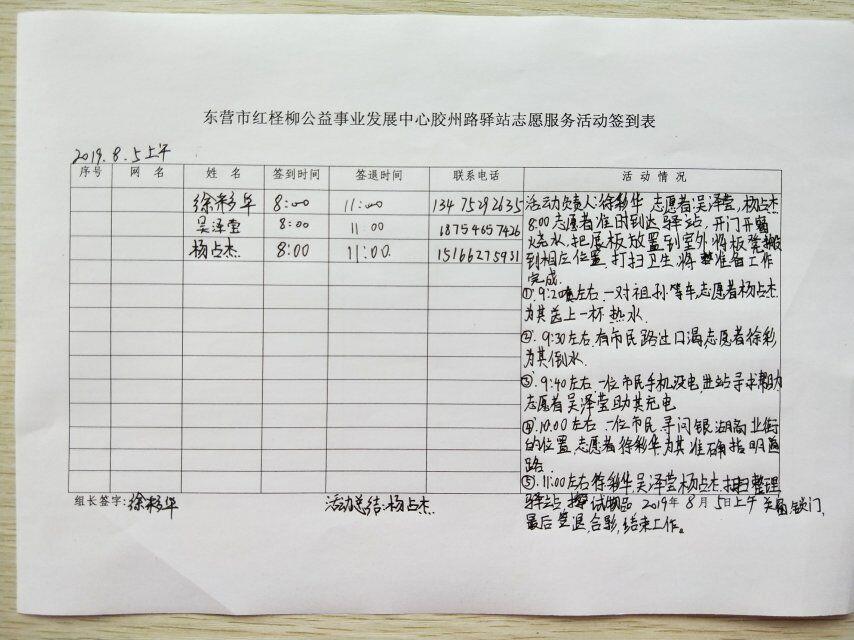 东营市红柽柳公益事业发展中心胶州路驿站志愿服务活动签到表
2019.8.5上午
序号 网 名 姓 名 签到时间 签退时间 联系电话 活 动 情 况
徐彩华 8:00 11:00 13475292635
吴泽莹 8:00 11 00 18754657426
杨占杰 8:00 11:00 15166275931
活动负责人:徐彩华 志愿者:吴泽莹,杨占杰
8:00志愿者准时到达驿站,开门开窗
烧水,把展板放置到室外,将板凳搬
到相应位置,打扫卫生,将准备工作
完成.
①.9:20左右,一对祖孙等车,志愿者杨占杰
为其送上一杯热水.
②.9:30左右,有市民路过口渴,志愿者徐彩
为其倒水.
③.9:40左右一位市民手机没电,进站寻求帮助
志愿者吴泽莹助其充电
④.10.00左右一位市民寻问银湖商业街
的位置,志愿者徐彩华为其准确指明道
路.
⑤.11:00左右徐彩华,吴泽莹,杨占杰.打扫整理
驿站,物品 2019年8月5日上午 关窗,锁门,
最后签退,合影,结束工作。
组长签字:徐彩华 活动总结:杨占杰